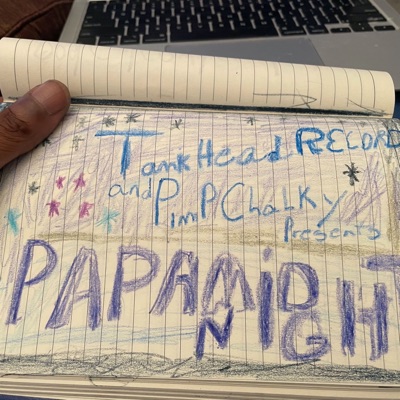 TankHead RECORD
and PimP Chalky
Presents
PAPAMiD
NiGHT